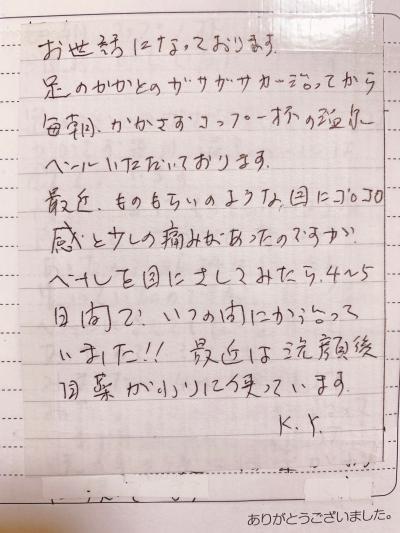 お世話になっております.
足のかかとのガサガサが治ってから
毎朝、かかさずコップ一杯の
ベールいただいております.
最近、ものもらいのような、目にゴロゴロ
感と少しの痛みがあったのですが、
ベールを目にさしてみたら、4~5
日間で、いつの間にか治って
いました!! 最近は洗顔後
目薬がわりに使っています.
K.Y.
ありがとうございました。